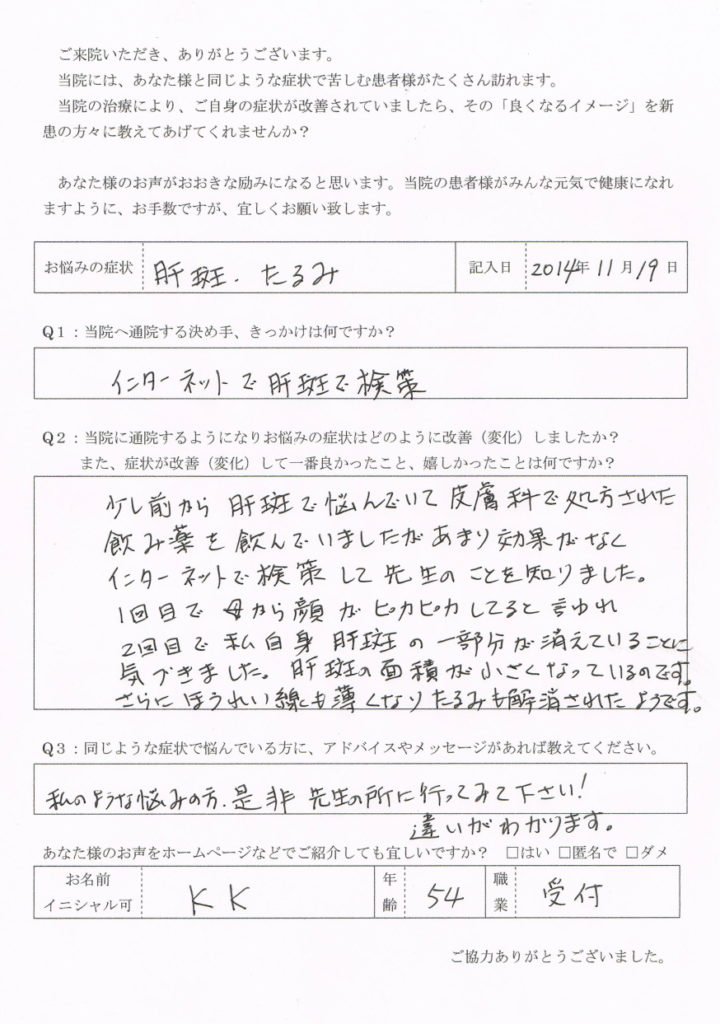 ご来院いただき、ありがとうございます。
当院には、あなた様と同じような症状で苦しむ患者様がたくさん訪れます。
当院の治療により、ご自身の症状が改善されていましたら、その「良くなるイメージ」を新
患の方々に教えてあげてくれませんか？
あなた様のお声がおおきな励みになると思います。当院の患者様がみんな元気で健康になれ
ますように、お手数ですが、宜しくお願い致します。
お悩みの症状 肝斑．たるみ 記入日 2014年11月19日
Q１：当院へ通院する決め手、きっかけは何ですか？
インターネットで肝斑で検策
Q２：当院に通院するようになりお悩みの症状はどのように改善（変化）しましたか？
また、症状が改善（変化）して一番良かったこと、嬉しかったことは何ですか？
少し前から肝斑で悩んでいて皮膚科で処方された
飲み薬を飲んでいましたがあまり効果がなく
インターネットで検策して先生のことを知りました。
1回目で母から顔がピカピカしてると言われ
2回目で私自身肝斑の一部分が消えていることに
気づきました。肝斑の面積が小さくなっているのです。
さらにほうれい線も薄くなりたるみも解消されたようです。
Q３：同じような症状で悩んでいる方に、アドバイスやメッセージがあれば教えてください。
私のような悩みの方．是非先生の所に行ってみて下さい！
違いがわかります。
あなた様のお声をホームページなどでご紹介しても宜しいですか？ □はい □匿名で □ダメ
お名前 イニシャル可 KK 年齢 54 職業 受付
ご協力ありがとうございました。